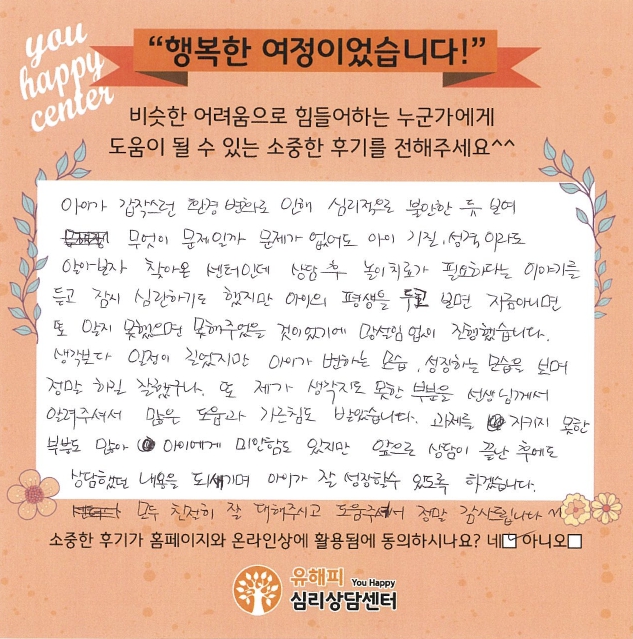 you
happy
center
“행복한 여정이었습니다!”
비슷한 어려움으로 힘들어하는 누군가에게
도움이 될 수 있는 소중한 후기를 전해주세요^^
아이가 갑작스런 환경 변화로 인해 심리적으로 불안한 듯 보여
무엇이 문제일까 문제가 없어도 아이 기질, 성격이라도
알아보자 찾아온 센터인데 상담 후 놀이치료가 필요하다는 이야기를
듣고 잠시 심란하기도 했지만 아이의 평생을 두고 보면 지금아니면
또 알지 못했으면 못해주었을 것이있기에 망설임 없이 진행했습니다.
생각보다 일정이 길었지만 아이가 변하는 모습, 성장하는 모습을 보며
정말 하길 잘했구나. 또 제가 생각지도 못한 부분을 선생님께서
알려주셔서 많은 도움과 가르침도 받았습니다. 과제를 지키지 못한
부분도 많아 아이에게 미안함도 있지만 앞으로 상담이 끝난 후에도
상담했던 내용을 되새기며 아이가 잘 성장할수 있도록 하겠습니다.
모두 친절히 잘 대해주시고 도움주셔서 정말 감사드립니다
소중한 후기가 홈페이지와 온라인상에 활용됨에 동의하시나요? 네□ 아니오□
유해피 You Happy
심리상담센터